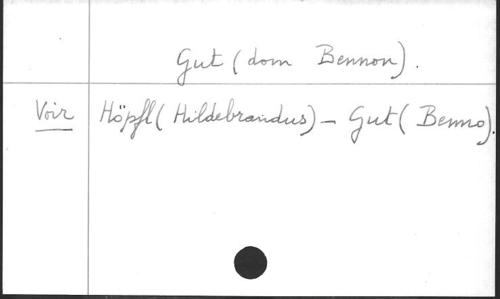 Gut (dom Bennon).
Voir Höpfl (Hildebrandus) - Gut (Benno).